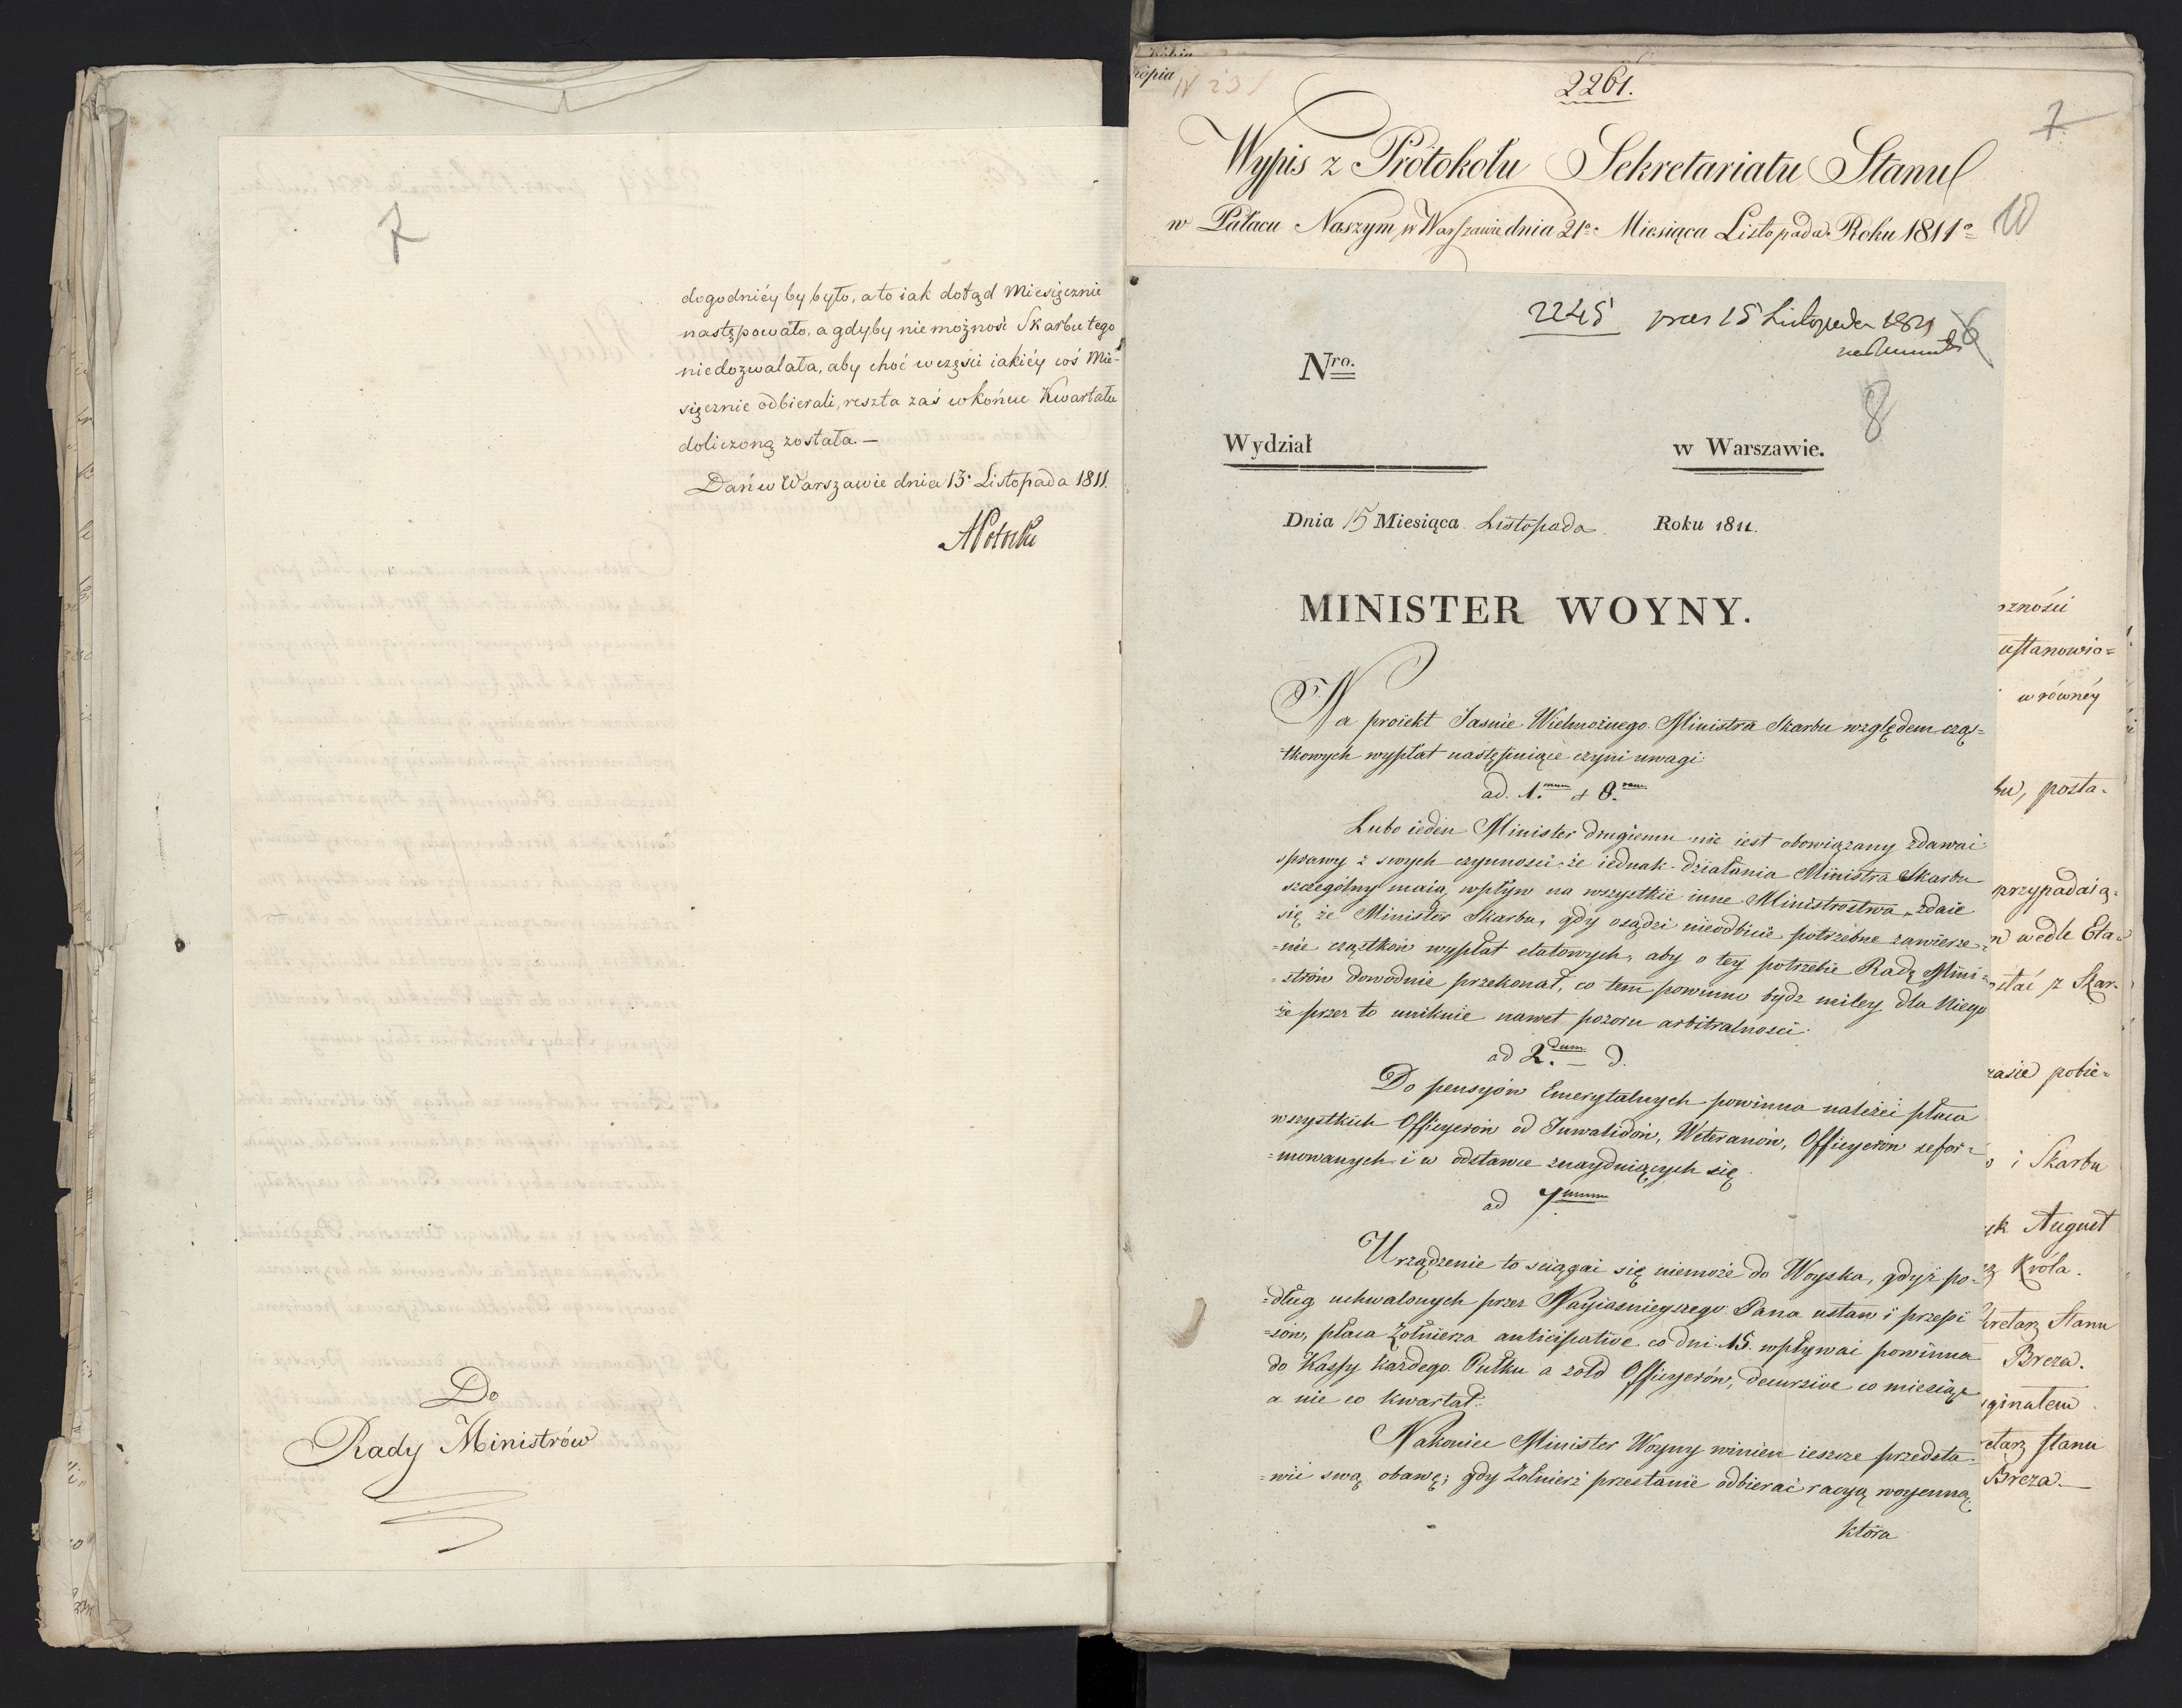 7
dogodnićy by było, a to iak dotąd Miesięcznie
następowało, a gdyby niemożność Skarbu tego
niedozwalała, aby choć wczęści iakićy coś Mie-
sięcznie odbierali, reszta zaś w końcu Kwartału
doliczoną została. —
Dań w Warszawie dnia 13. Listopada 1811.
APotocki
Do
Rady Ministrów
Kopia
N 23
2261.
7
Wypis z Protokołu Sekretariatu Stanu
w Pałacu Naszym w Warszawie dnia 21o Miesiąca Listopada Roku 1811o
10
2245 15 Listopada 1811
6
Nro.
8
Wydział w Warszawie.
Dnia 15 Miesiąca Listopada Roku 1811.
MINISTER WOYNY.
Na proiekt Jaśnie Wielmożnego Ministra Skarbu względem cząs=
=tkowych wypłat następuiące czyni uwagi
ad. 1.mum et 8.vum
Lubo ieden Minister drugiemu nie iest obowiązany zdawać
sprawy z swych czynności, że iednak działania Ministra Skarbu
szczególny maią wpływ na wszystkie inne Ministrostwa, zdaie
się że Minister Skarbu, gdy osądzi nieodbicie potrzebne zawiesze=
=nie cząstków wypłat etatowych, aby o tey potrzebie Radę Mini=
=strów dowodnie przekonał, co tem powinno bydz miley dla Niego
że przez to uniknie nawet pozoru arbitralności.
ad 2.dum D.
Do pensyjów Emerytalnych powinna należeć płaca
wszystkich Officyerów od Inwalidów, Weteranów, Officyerów refor=
=mowanych i w odstawce znayduiących się.
ad 7mum
Urządzenie to ściągać się niemoże do Woyska, gdyż po=
=dług uchwalonych przez Nayiaśnieyszego Pana ustaw i przepi
=sów, płaca Żołnierza anticipative co dni 15. wpływać powinna
do Kassy każdego Pułku a żołd Officyerów, decursive co miesiąc
a nie co kwartał.
Nakoniec Minister Woyny winien ieszcze przedsta=
=wić swą obawę; gdy Żołnierz przestanie odbierać racyą woyenną,
która
ozności
ustanowio=
w równéy
bu, posta-
przypadaią-
m wedle Eta=
ostać z Skar-
zasie pobie=
o i Skarbu
yk August
ez Króla.
kretarz Stanu
Breza.
yginałem
retarz stanu
Breza. —